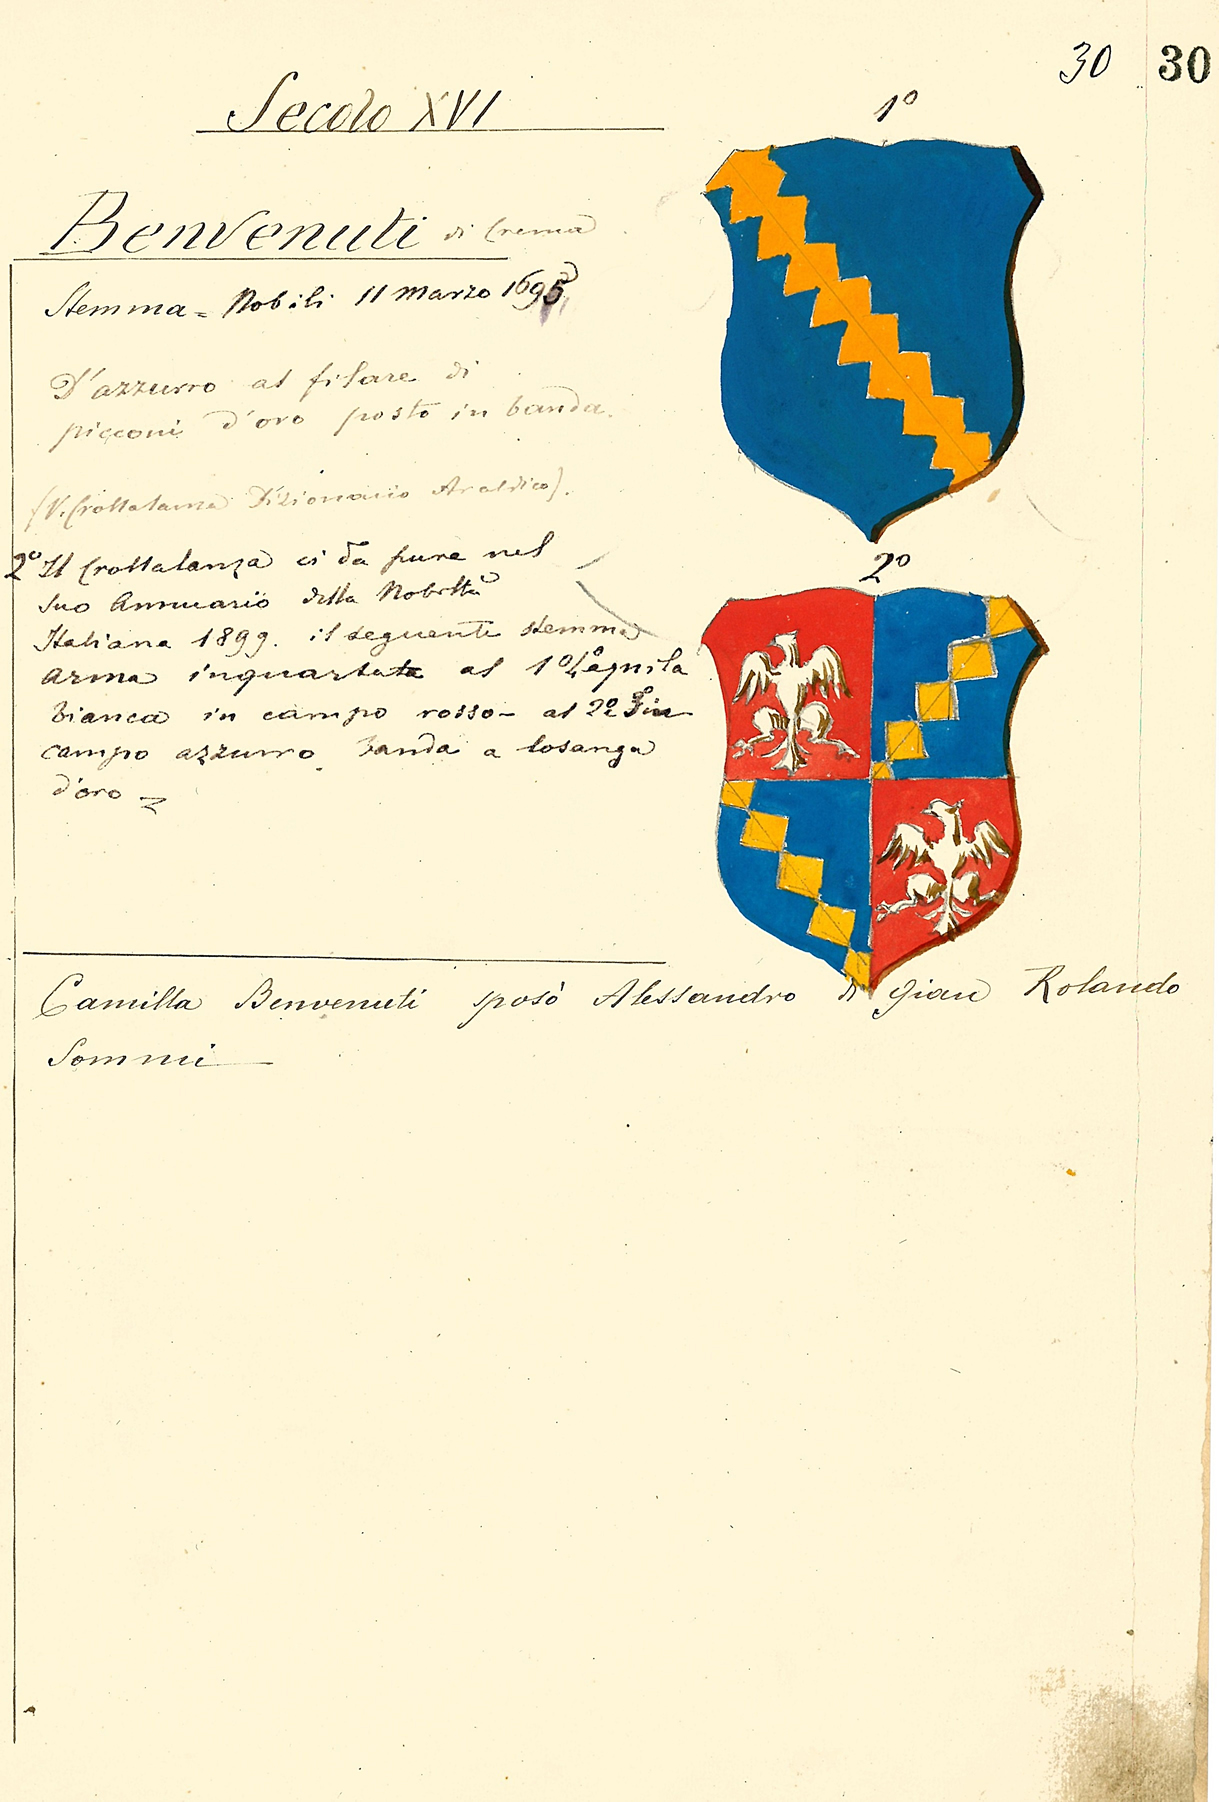 30 30
Secolo XVI
1º
Benvenuti di Crema
Stemma = Nobili 11 Marzo 1695
D'azzurro al filare di
picconi d'oro posto in banda.
(V. Crollalanza Dizionario Araldico).
2º
2º Il Crollalanza ci dà pure nel
suo Annuario della Nobiltà
Italiana 1899. il seguente stemma
Arma inquartata al 1º 4º aquila
bianca in campo rosso - al 2º 3º in
campo azzurro banda a losanga
d'oro
Camilla Benvenuti sposò Alessandro di Gian Rolando
Sommi